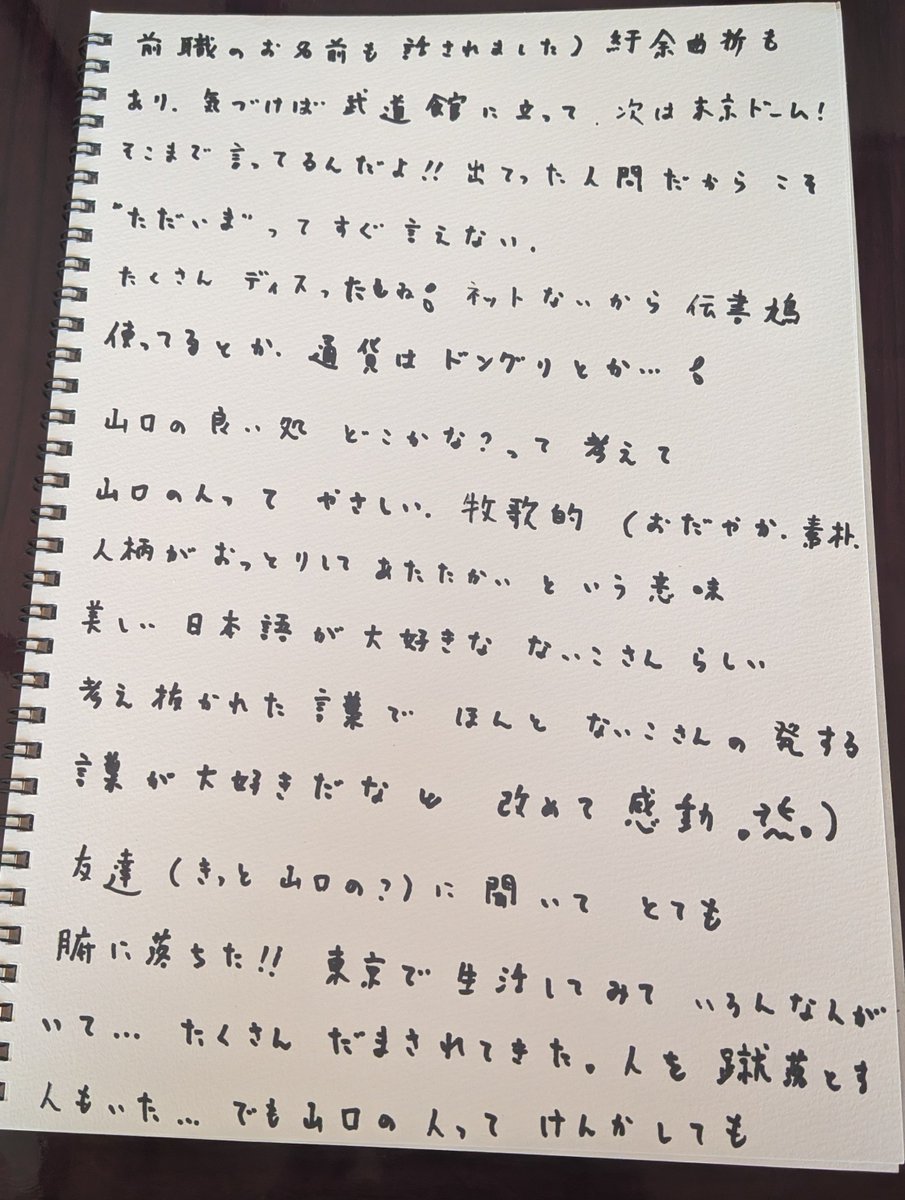 前職のお名前も話されました) 紆余曲折も
あり、気づけば武道館に立って、次は東京ドーム!
そこまで言ってるんだよ!! 出てった人間だからこそ
"ただいま"ってすぐ言えない。
たくさん ディスったもね。 ネットないから 伝書鳩
使ってるとか、 通貨は ドングリとか…。
山口の良い処 どこかな?って 考えて
山口の人って やさしい、牧歌的 (おだやか、素朴、
人柄が おっとりして あたたかい という意味
美しい 日本語が 大好きな ないこさん らしい
考え抜かれた 言葉で ほんと ないこさんの 発する
言葉が 大好きだな 改めて 感動 )
友達 (きっと 山口の?) に 聞いて とても
腑に落ちた!! 東京で 生活してみて いろんな人が
いて… たくさん だまされてきた。人を 蹴落とす
人もいた… でも山口の 人って けんかしても